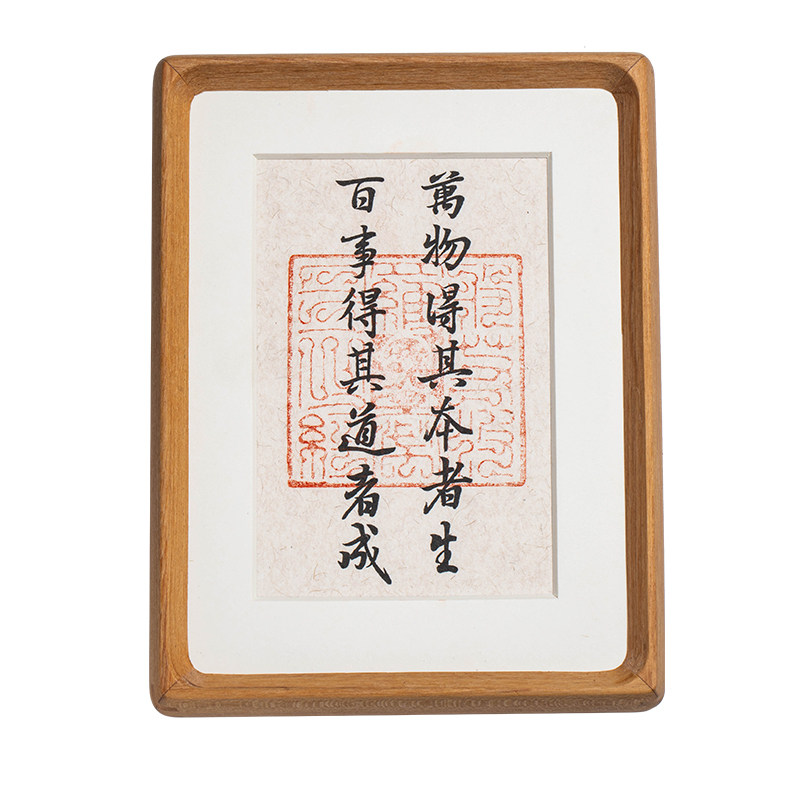 萬物得其本者生
百事得其道者成